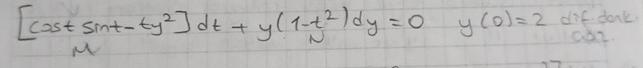 [cost sint - ty²] dt + y(1-t²) dy = 0   y(0)=2   dif denk.
M   N   çöz.